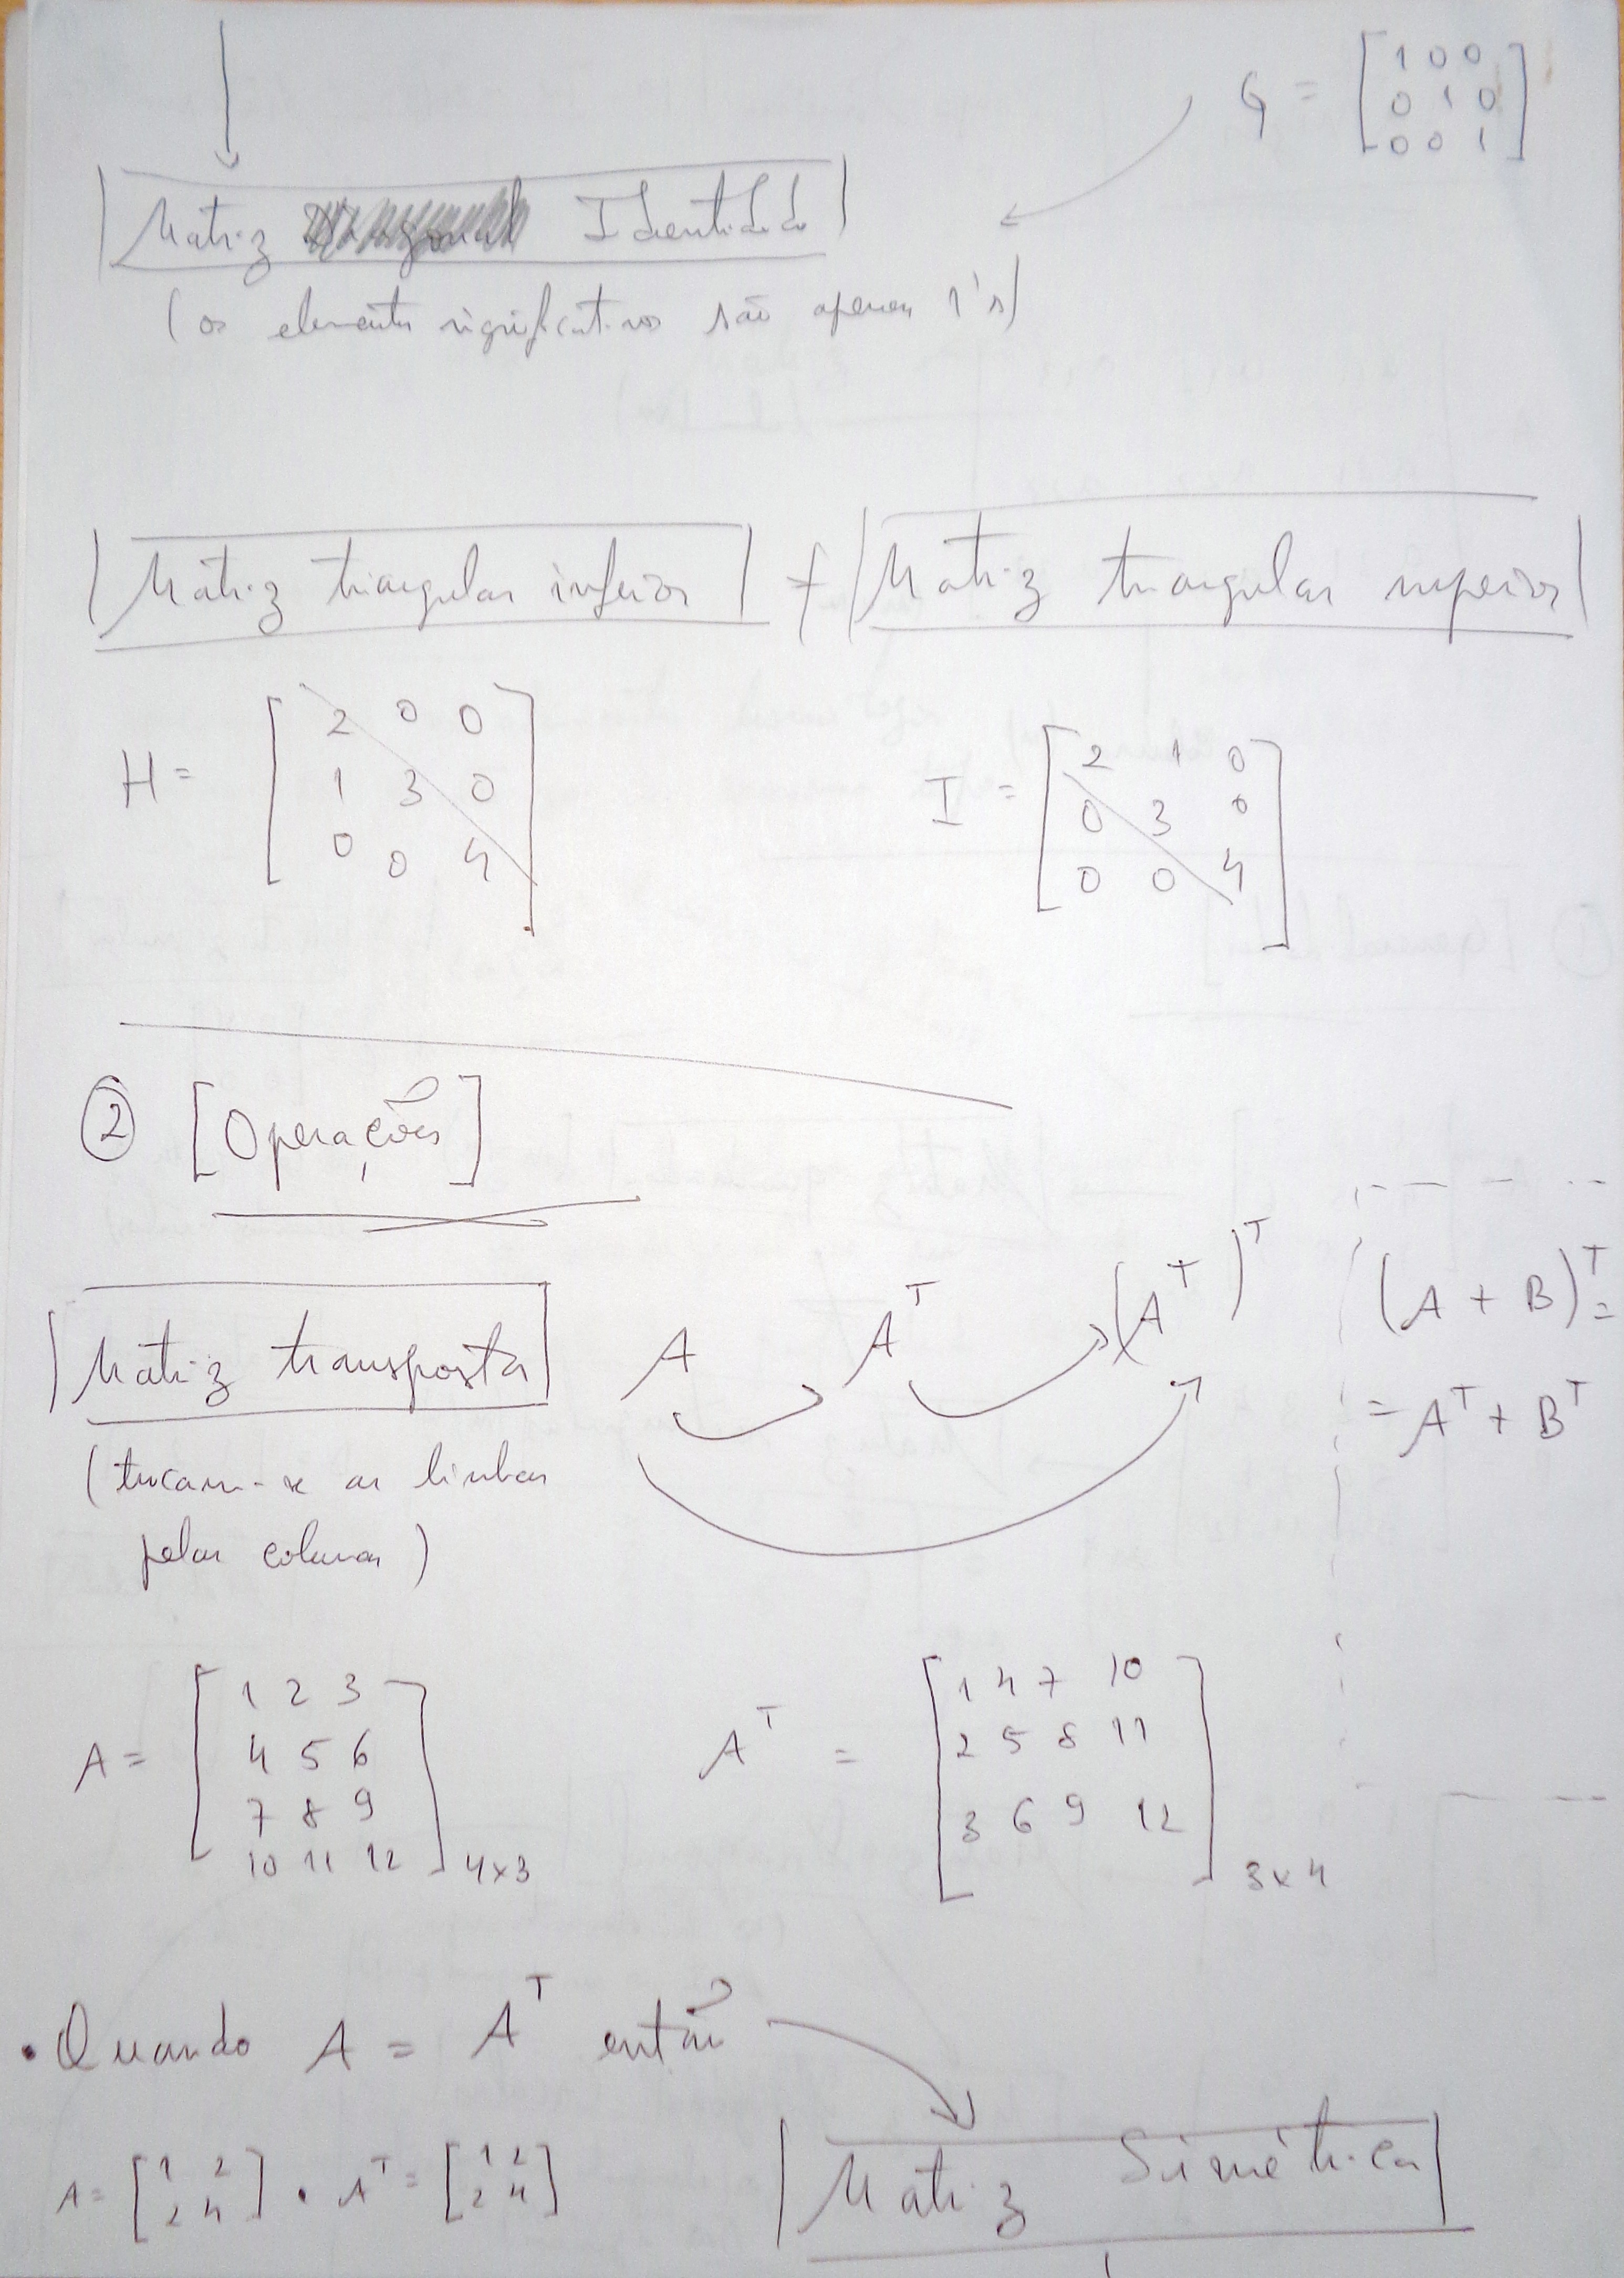 G = [1 0 0
0 1 0
0 0 1]
Matriz Identidade
(os elementos significativos são apenas 1's)
Matriz triangular inferior ≠ Matriz triangular superior
H = [2 0 0
1 3 0
0 0 4]
I = [2 1 0
0 3 0
0 0 4]
② [Operações]
Matriz transposta
(trocam-se as linhas
pelas colunas)
A A^T (A^T)^T
(A + B)^T =
= A^T + B^T
A = [1 2 3
4 5 6
7 8 9
10 11 12] 4x3
A^T = [1 4 7 10
2 5 8 11
3 6 9 12] 3x4
• Quando A = A^T então
Matriz Simétrica
A = [1 2
2 4] • A^T = [1 2
2 4]